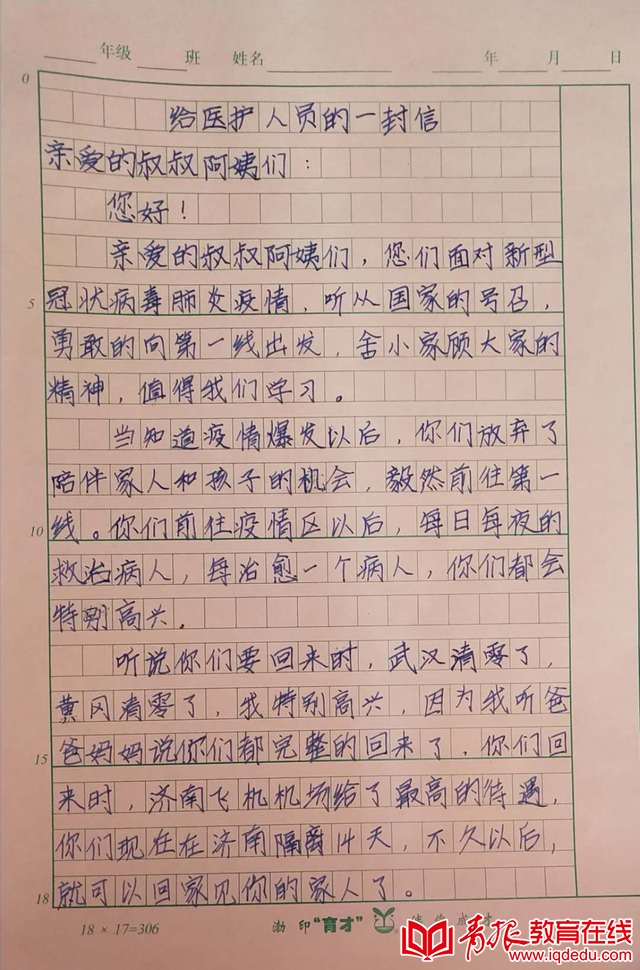 年级 班 姓名 年 月 日
0
给医护人员的一封信
亲爱的叔叔阿姨们：
您好！
亲爱的叔叔阿姨们，您们面对新型
5 冠状病毒肺炎疫情，听从国家的号召，
勇敢的向第一线出发，舍小家顾大家的
精神，值得我们学习。
当知道疫情爆发以后，你们放弃了
陪伴家人和孩子的机会，毅然前往第一
10 线。你们前往疫情区以后，每日每夜的
救治病人，每治愈一个病人，你们都会
特别高兴。
听说你们要回来时，武汉清零了，
黄冈清零了，我特别高兴，因为我听爸
15 爸妈妈说你们都完整的回来了，你们回
来时，济南飞机机场给了最高的待遇，
你们现在在济南隔离14天，不久以后，
18 就可以回家见你的家人了。
18×17=306 渤印“育才”
青报教育在线
www.iqdedu.com